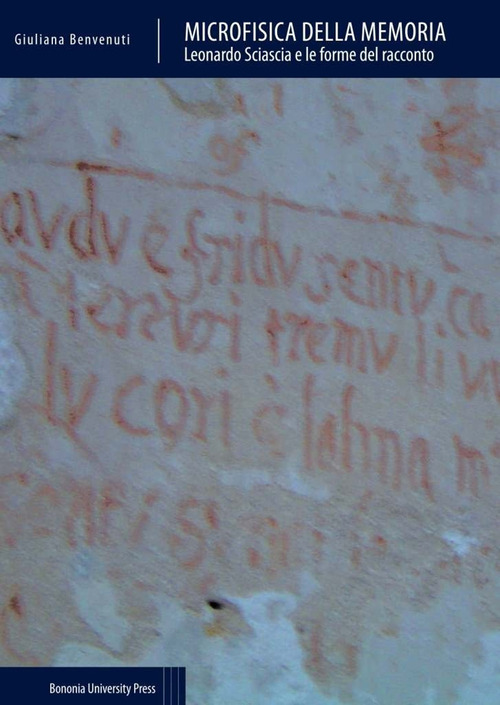 Giuliana Benvenuti
MICROFISICA DELLA MEMORIA
Leonardo Sciascia e le forme del racconto
avdv e fridv sentv
terrvri tremv li
lv cori è lalma
Bononia University Press